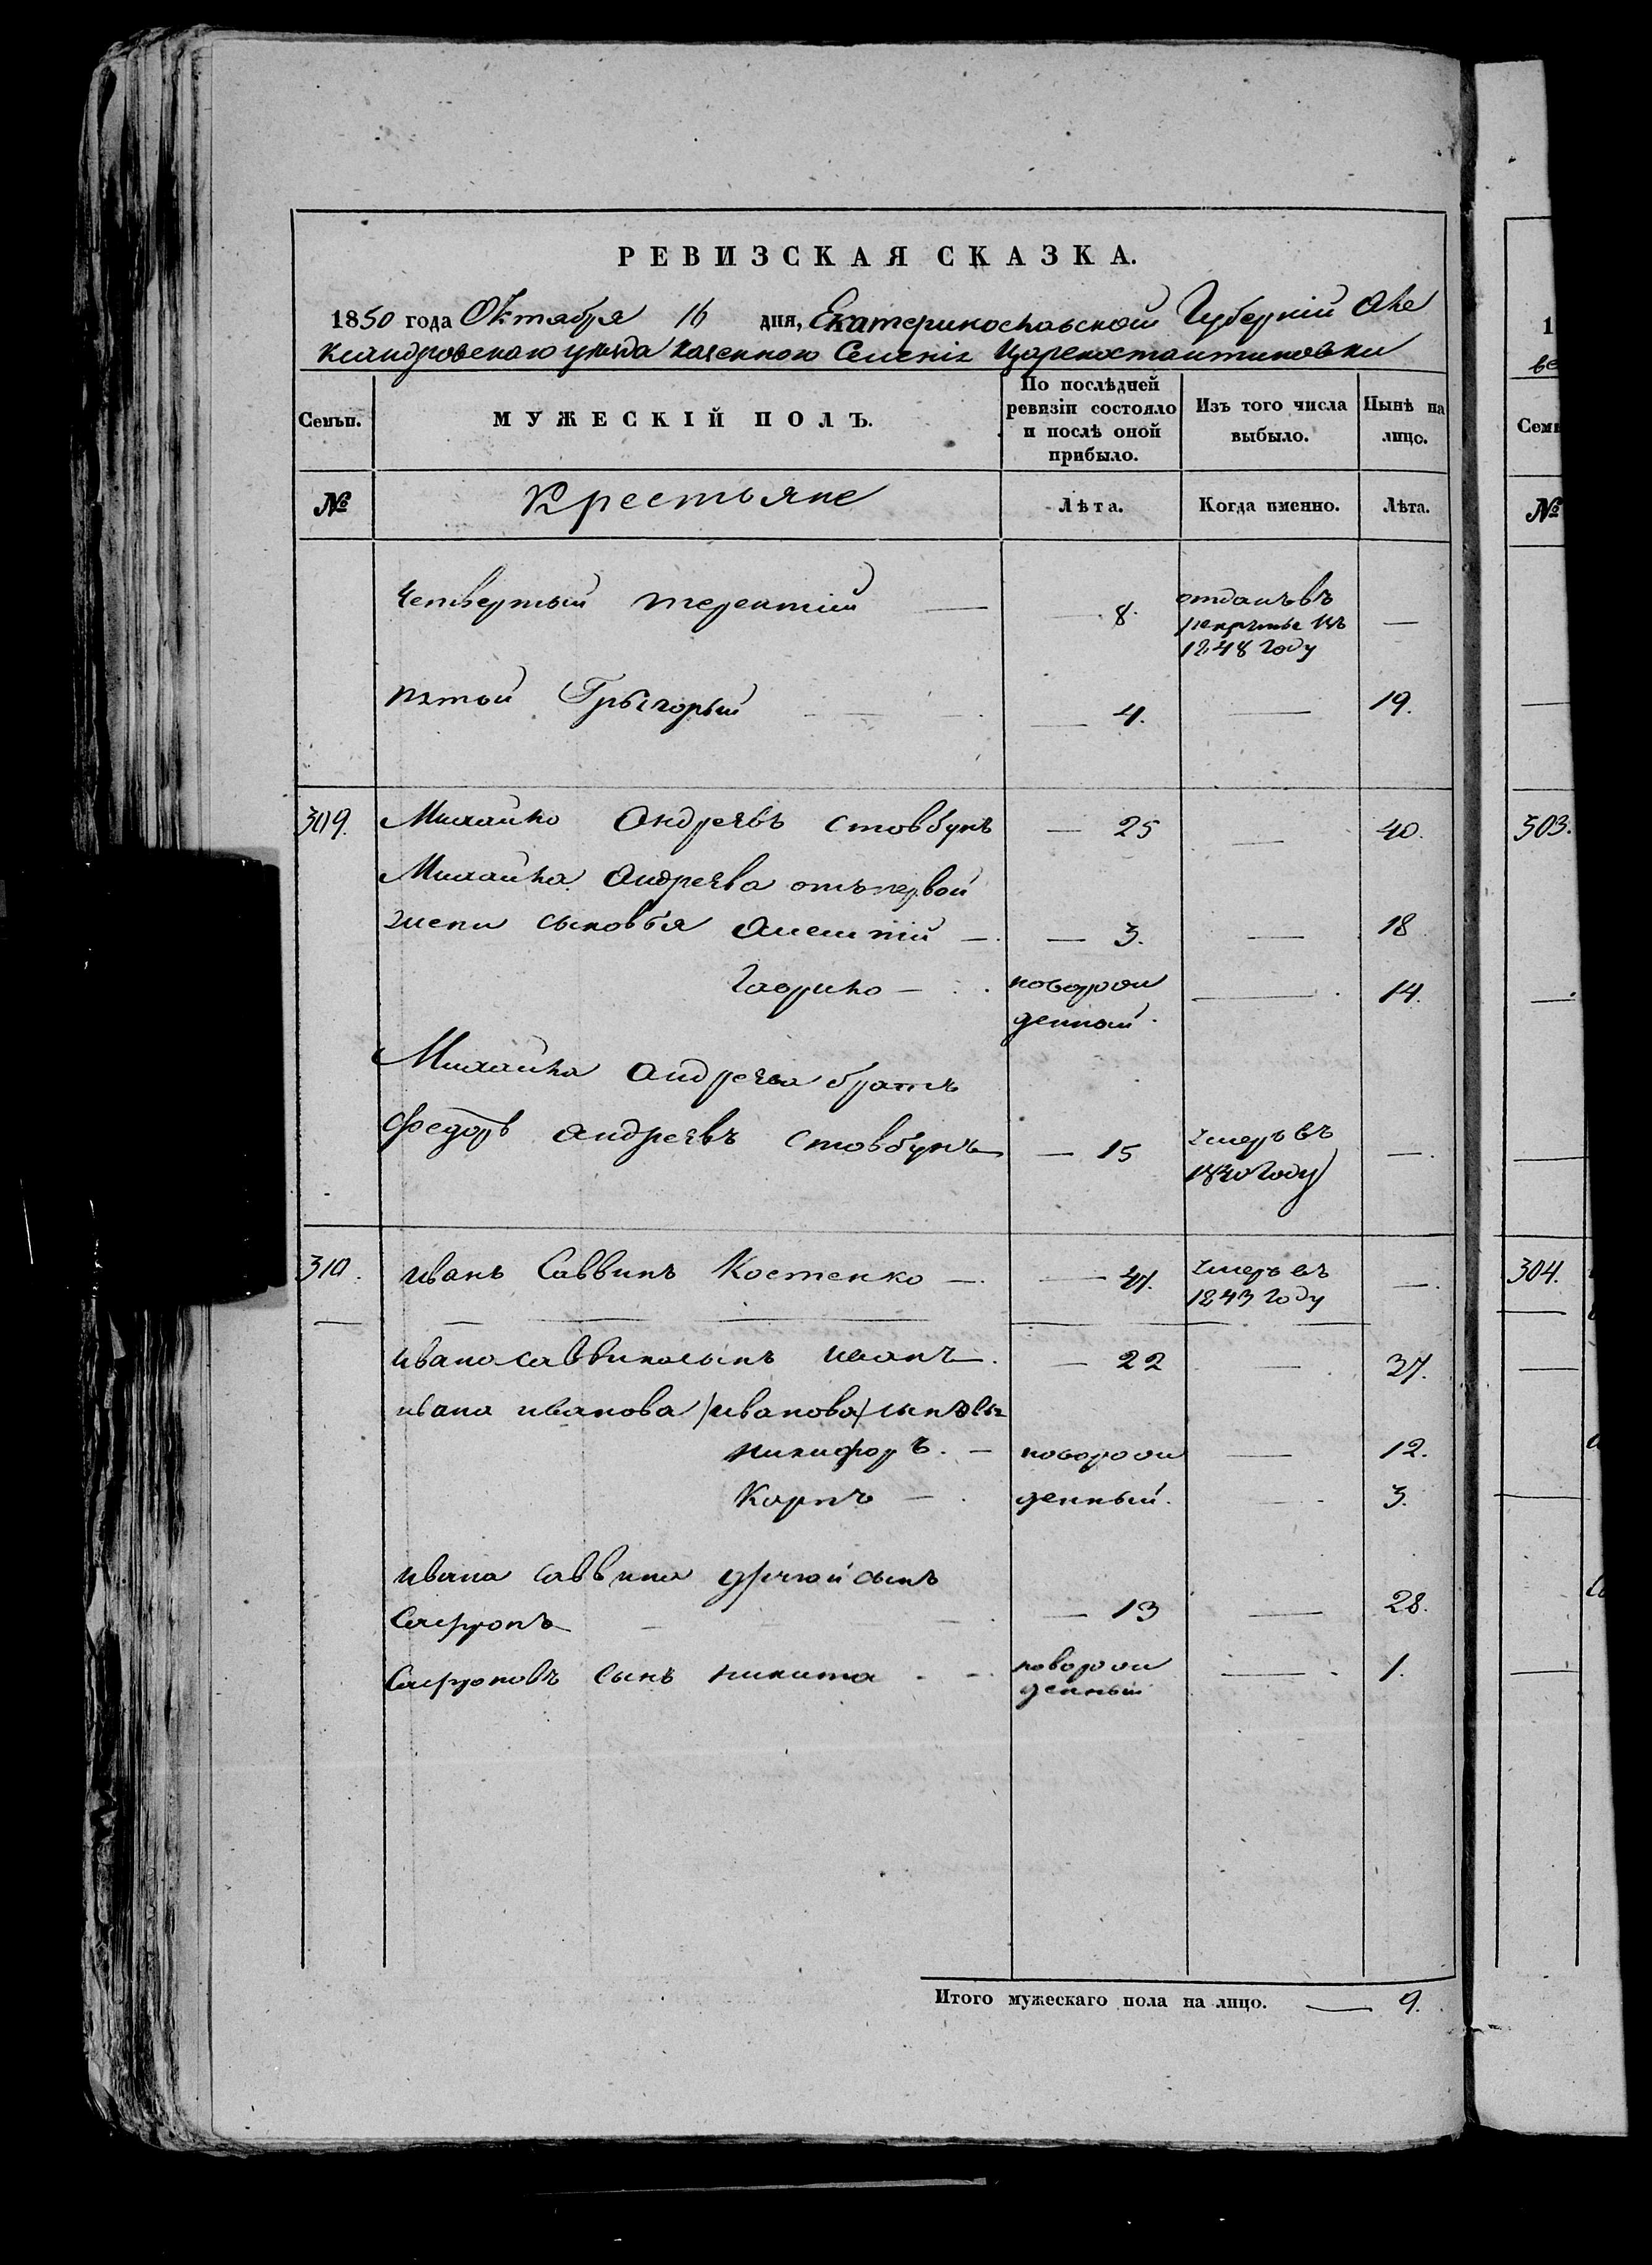 РЕВИЗСКАЯ СКАЗКА.
1850 года Октября 16 дня, Екатеринославской Губерніи Але
ксандровскаго уезда казенного Селенія Цареконстантиновки
Семьи.
МУЖЕСКІЙ ПОЛЪ.
По послѣдней
ревизіи состояло
и послѣ оной
прибыло.
Изъ того числа
выбыло.
Нынѣ на
лицо.
№ Крестьяне Лѣта. Когда именно. Лѣта.
Четвертый терентій — 8. отданъ въ
рекруты въ
1848 году —
пятой Григорый — 4. — 19.
309. Михайло Андреевъ Стовбунъ — 25 — 40.
Михайла Андреева отъ первой
жены сыновья Алексей — 3. — 18
Гаврило — новорож
денный. — 14.
Михайла Андреева братъ
Федоръ Андреевъ Стовбунъ — 15 умеръ въ
1840 году —
310. Иванъ Саввинъ Костенко — 47. умеръ въ
1843 году —
Ивана Саввина сынъ Иванъ — 22 — 37.
Ивана Иванова /Иванова/ сыновья
Никифоръ. — новорож — 12.
Карпъ — денный. — 3.
Ивана Саввина другой сынъ
Сафронъ — 13 — 28.
Сафроновъ сынъ Никита — новорож
денный — 1.
Итого мужескаго пола на лицо. — 9.
1
Семи
№
303.
304.